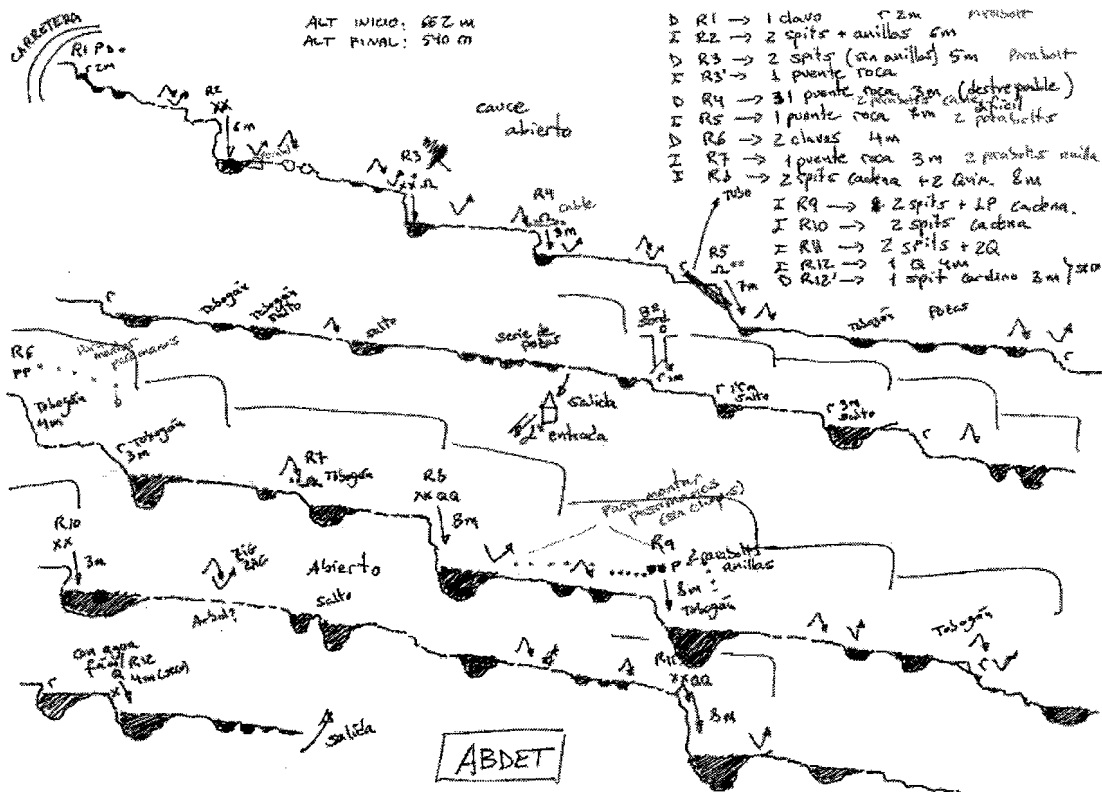 CARRETERA
ALT INICIO: 662 m
ALT FINAL: 540 m
D R1 → 1 clavo r 2m parabolt
I R2 → 2 spits + anillas 6m
D R3 → 2 spits (sin anillas) 5m Parabolt
I R3' → 1 puente roca
D R4 → 1 puente roca 3m (destrepable)
I R5 → 1 puente roca 7m 2 parabolts
D R6 → 2 clavos 4m
I R7 → 1 puente roca 3m 2 parabolts anilla
I R8 → 2 spits cadena + 2 Quim. 8m
I R9 → 2 spits + 1P cadena.
I R10 → 2 spits cadena
I R11 → 2 spits + 2Q
I R12 → 1 Q 4m
D R12' → 1 spit cordino 3m
R1
r 2m
R2
XX
6m
cauce
abierto
R3
XX Ω
R4
Ω
cable
3m
TUBO
r
R5
Ω
7m
Tobogán
Potas
r
r
Tobogán
Tobogán
salto
salto
serie de
potas
salida
2ª entrada
r
salto
r 3m
salto
r
R6
PP
pasamanos
Tobogán
4m
r Tobogán
3m
R7
Tobogán
R8
XX QQ
8m
Para montar
pasamanos
(sin chapas)
R9
P
2 parabolts
anillas
8m
Tobogán
Tobogán
r
R10
XX
3m
ZIG
ZAG
Abierto
Arbol?
salto
R11
XX QQ
8m
con agua
fácil
R12
Q
4m (seco)
r
X
salida
ABDET